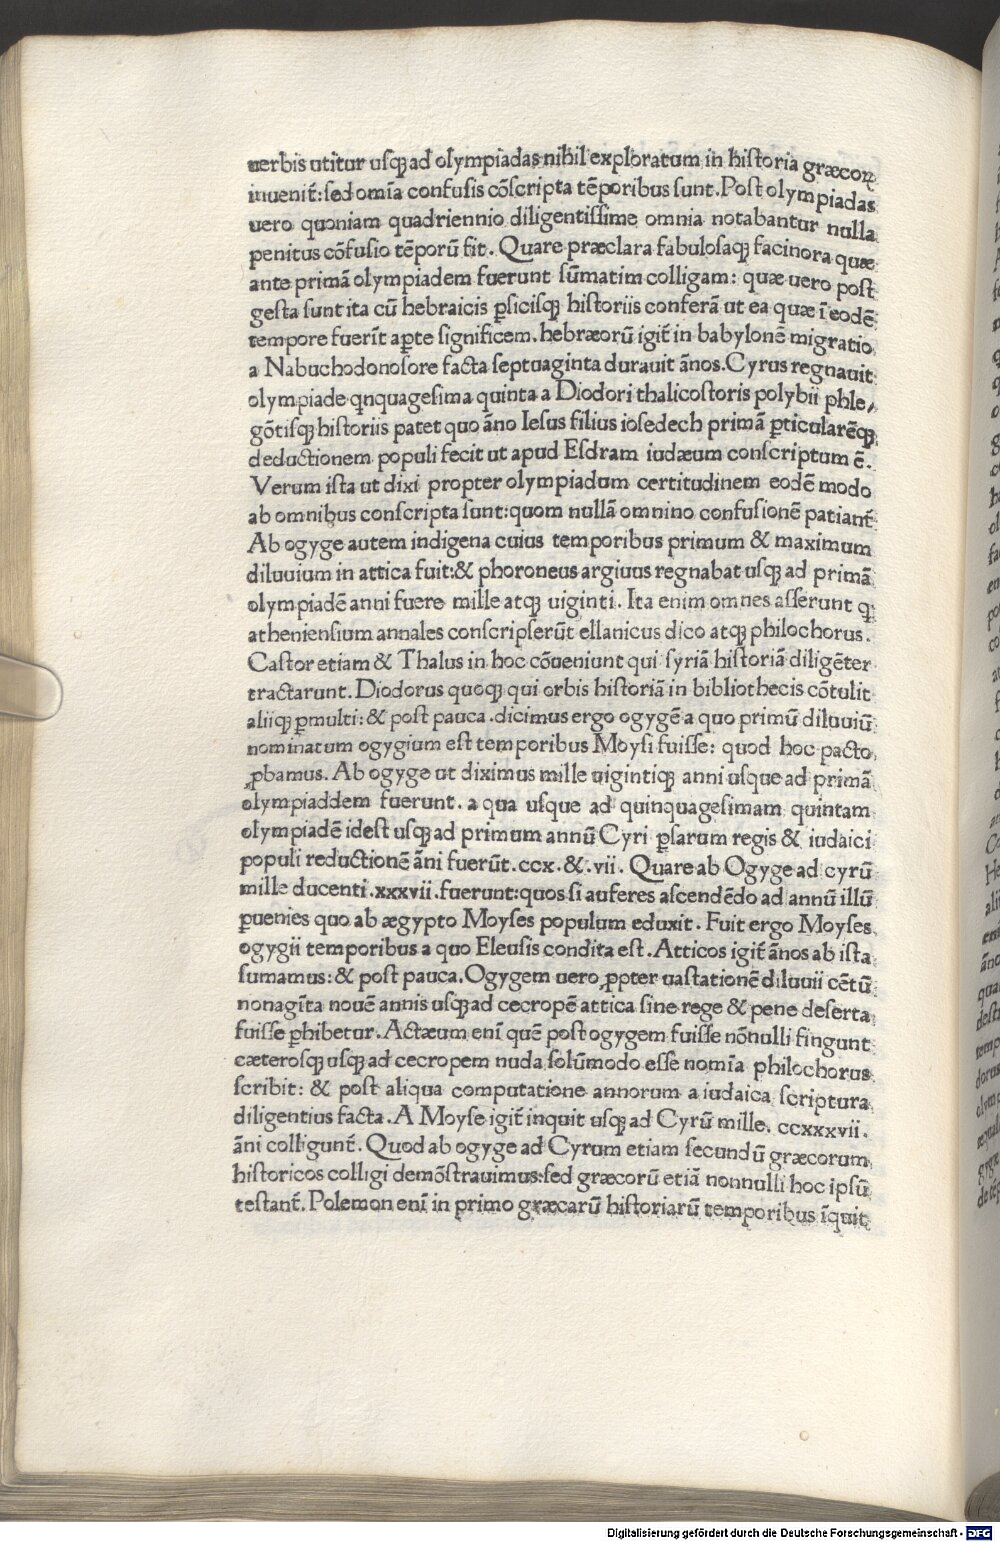 uerbis utitur usqꝫ ad olympiadas nihil exploratum in historia græcoꝝ
inuenit̄: sed omīa confusis cōscripta tēporibus sunt. Post olympiadas
uero quoniam quadriennio diligentissime omnia notabantur nulla
penitus cōfusio tēporū fit. Quare præclara fabulosaqꝫ facinora quæ
ante primā olympiadem fuerunt sūmatim colligam: quæ uero post
gesta sunt ita cū hebraicis ꝑsicisqꝫ historiis conferā ut ea quæ ī eodē
tempore fuerīt aꝑte significem. hebræorū igit̄ in babylonē migratio
a Nabuchodonosore facta septuaginta durauit ānos. Cyrus regnauit
olympiade qnquagesima quinta a Diodori thalicostoris polybii phle,
gōtisqꝫ historiis patet quo āno Iesus filius iosedech primā ꝑticularēqꝫ
deductionem populi fecit ut apud Esdram iudæum conscriptum ē.
Verum ista ut dixi propter olympiadum certitudinem eodē modo
ab omnibus conscripta sunt: quom nullā omnino confusionē patiant̄
Ab ogyge autem indigena cuius temporibus primum & maximum
diluuium in attica fuit: & phoroneus argiuus regnabat usqꝫ ad primā
olympiadē anni fuere mille atqꝫ uiginti. Ita enim omnes asserunt q
atheniensium annales conscripserūt ellanicus dico atqꝫ philochorus.
Castor etiam & Thalus in hoc cōueniunt qui syriā historiā diligēter
tractarunt. Diodorus quoqꝫ qui orbis historiā in bibliothecis cōtulit
aliiqꝫ ꝑmulti: & post pauca. dicimus ergo ogygē a quo primū diluuiū
nominatum ogygium est temporibus Moysi fuisse: quod hoc pacto
ꝓbamus. Ab ogyge ut diximus mille uigintiqꝫ anni usque ad primā
olympiaddem fuerunt. a qua usque ad quinquagesimam quintam
olympiadē idest usqꝫ ad primum annū Cyri ꝑsarum regis & iudaici
populi reductionē āni fuerūt. ccx. &. vii. Quare ab Ogyge ad cyrū
mille ducenti. xxxvii. fuerunt: quos si auferes ascendēdo ad annū illū
ꝑuenies quo ab ægypto Moyses populum eduxit. Fuit ergo Moyses
ogygii temporibus a quo Eleusis condita est. Atticos igit̄ ānos ab ista
sumamus: & post pauca. Ogygem uero ꝓpter uastationē diluuii cētū
nonagīta nouē annis usqꝫ ad cecropē attica sine rege & pene deserta
fuisse ꝑhibetur. Actæum enī quē post ogygem fuisse nōnulli fingunt
cæterosqꝫ usqꝫ ad cecropem nuda solūmodo esse nomīa philochorus
scribit: & post aliqua computatione annorum a iudaica scriptura
diligentius facta. A Moyse igit̄ inquit usqꝫ ad Cyrū mille. ccxxxvii.
āni colligunt̄. Quod ab ogyge ad Cyrum etiam secundū græcorum
historicos colligi demōstrauimus: sed græcorū etiā nonnulli hoc ipsū
testant̄. Polemon enī in primo græcarū historiarū temporibus īquit
Digitalisierung gefördert durch die Deutsche Forschungsgemeinschaft - DFG